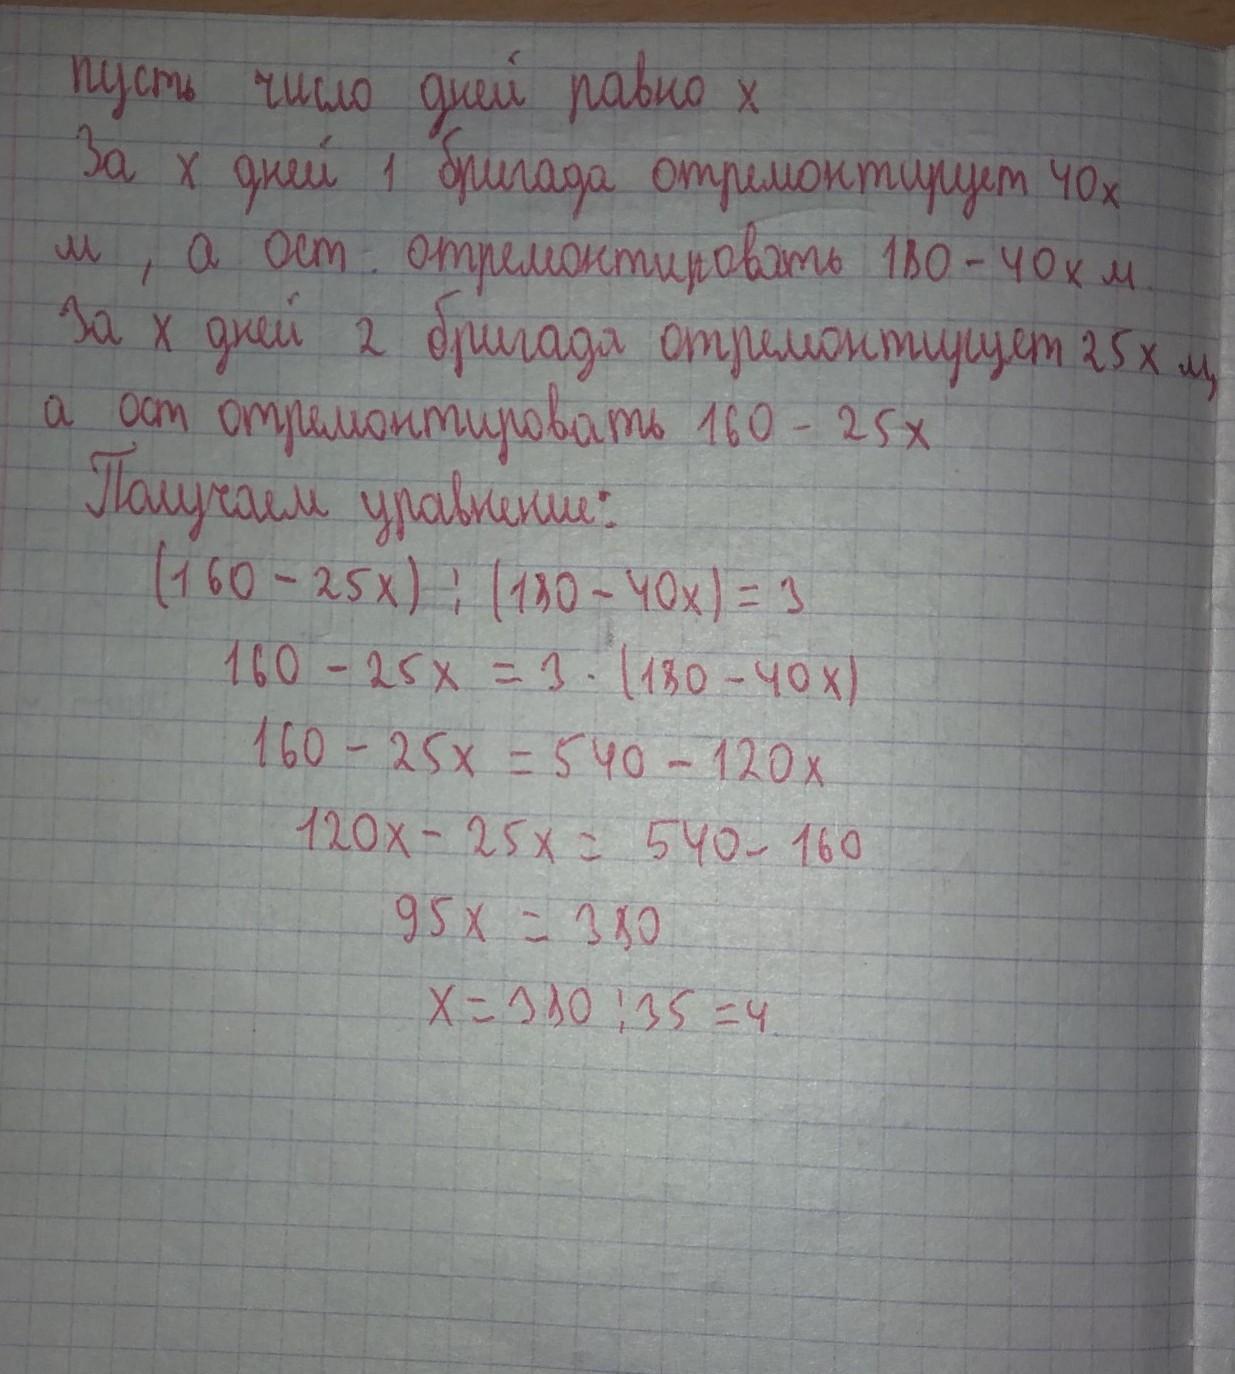 пусть число дней равно х
За х дней 1 бригада отремонтирует 40х
м, а ост. отремонтировать 180-40х м
За х дней 2 бригада отремонтирует 25х м,
а ост отремонтировать 160-25х
Получаем уравнение:
(160-25х):(180-40х)=3
160-25х=3·(180-40х)
160-25х=540-120х
120х-25х=540-160
95х=380
х=380:35=4